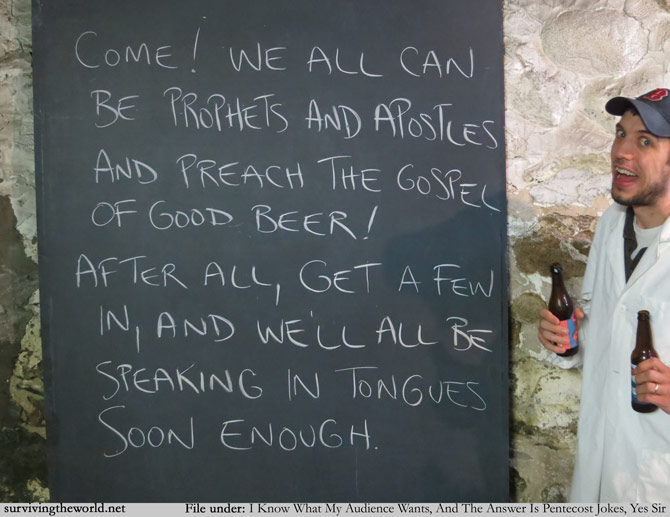 COME! WE ALL CAN
BE PROPHETS AND APOSTLES
AND PREACH THE GOSPEL
OF GOOD BEER!
AFTER ALL, GET A FEW
IN, AND WE'LL ALL BE
SPEAKING IN TONGUES
SOON ENOUGH.
survivingtheworld.net File under: I Know What My Audience Wants, And The Answer Is Pentecost Jokes, Yes Sir